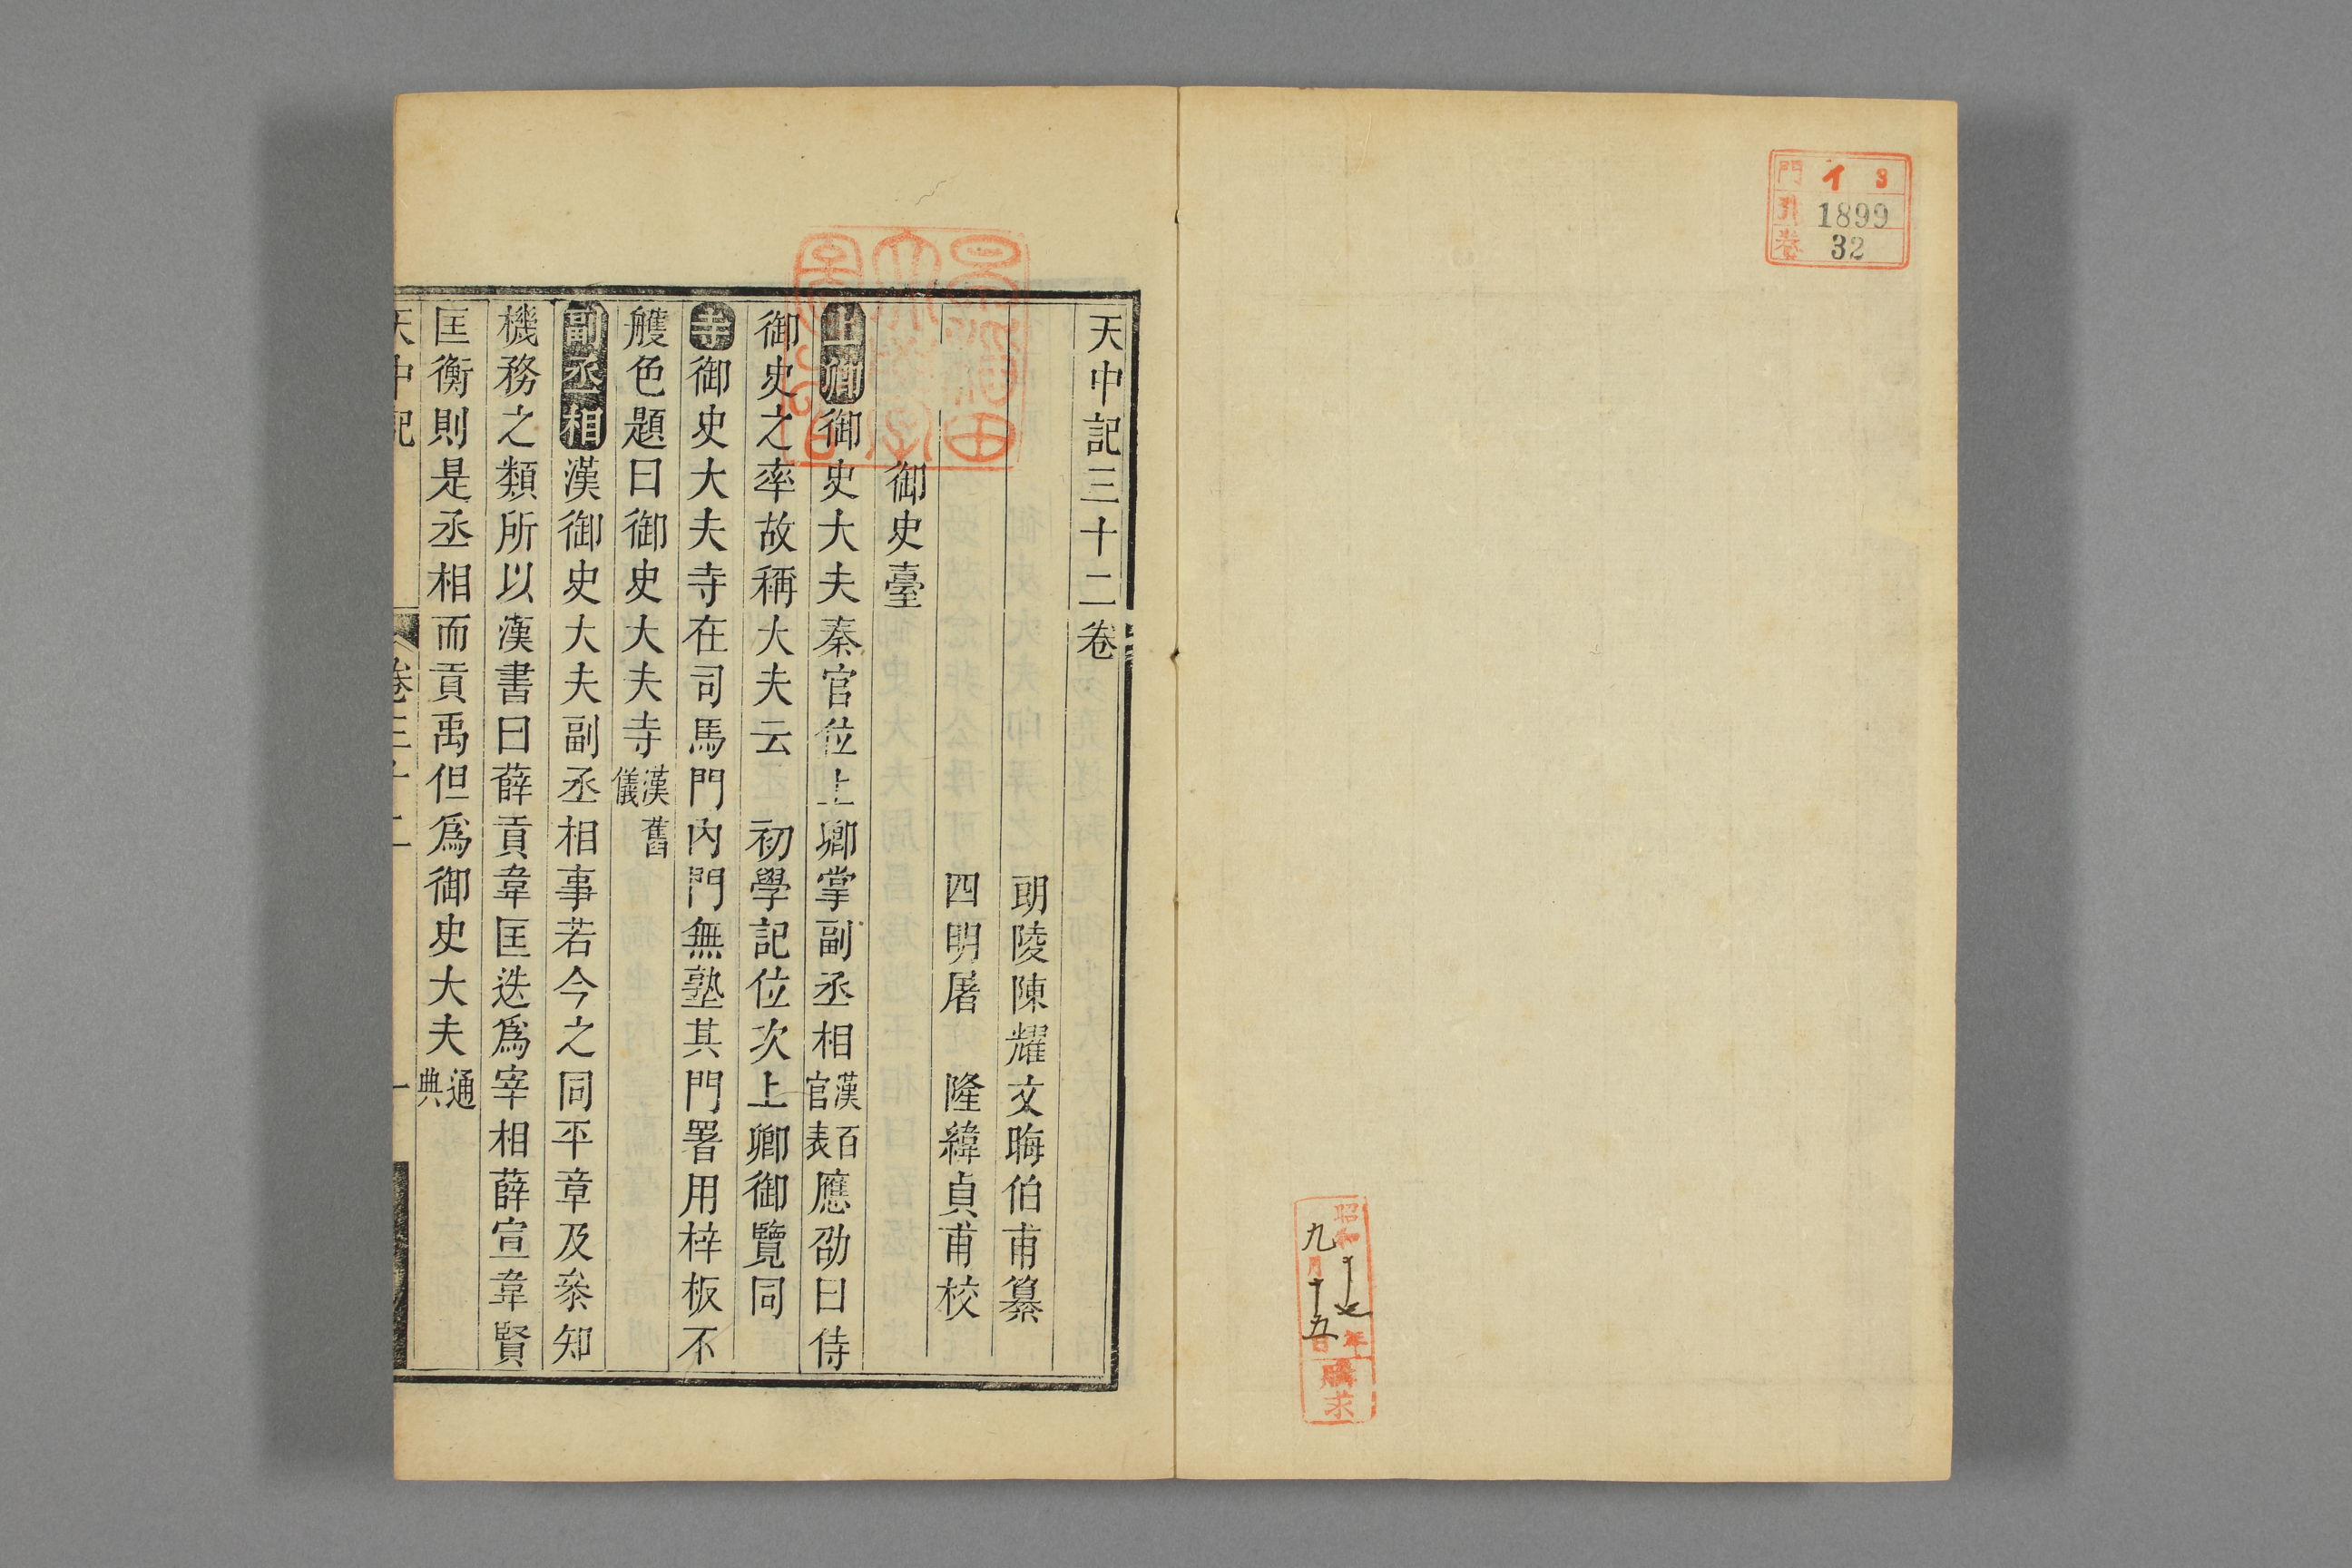 門 イ 3
號 1899
卷 32
昭和十七年
九月十五日
購求
天中記三十二卷
朗陵陳耀文晦伯甫纂
四明屠 隆緯貞甫校
御史臺
上卿御史大夫秦官位上卿掌副丞相漢百官表應劭曰侍
御史之率故稱大夫云 初學記位次上卿御覽同
寺御史大夫寺在司馬門內門無塾其門署用梓板不
雘色題曰御史大夫寺漢舊儀
副丞相漢御史大夫副丞相事若今之同平章及叅知
機務之類所以漢書曰薛貢韋匡迭爲宰相薛宣韋賢
匡衡則是丞相而貢禹但爲御史大夫通典
天中記 卷三十二 一